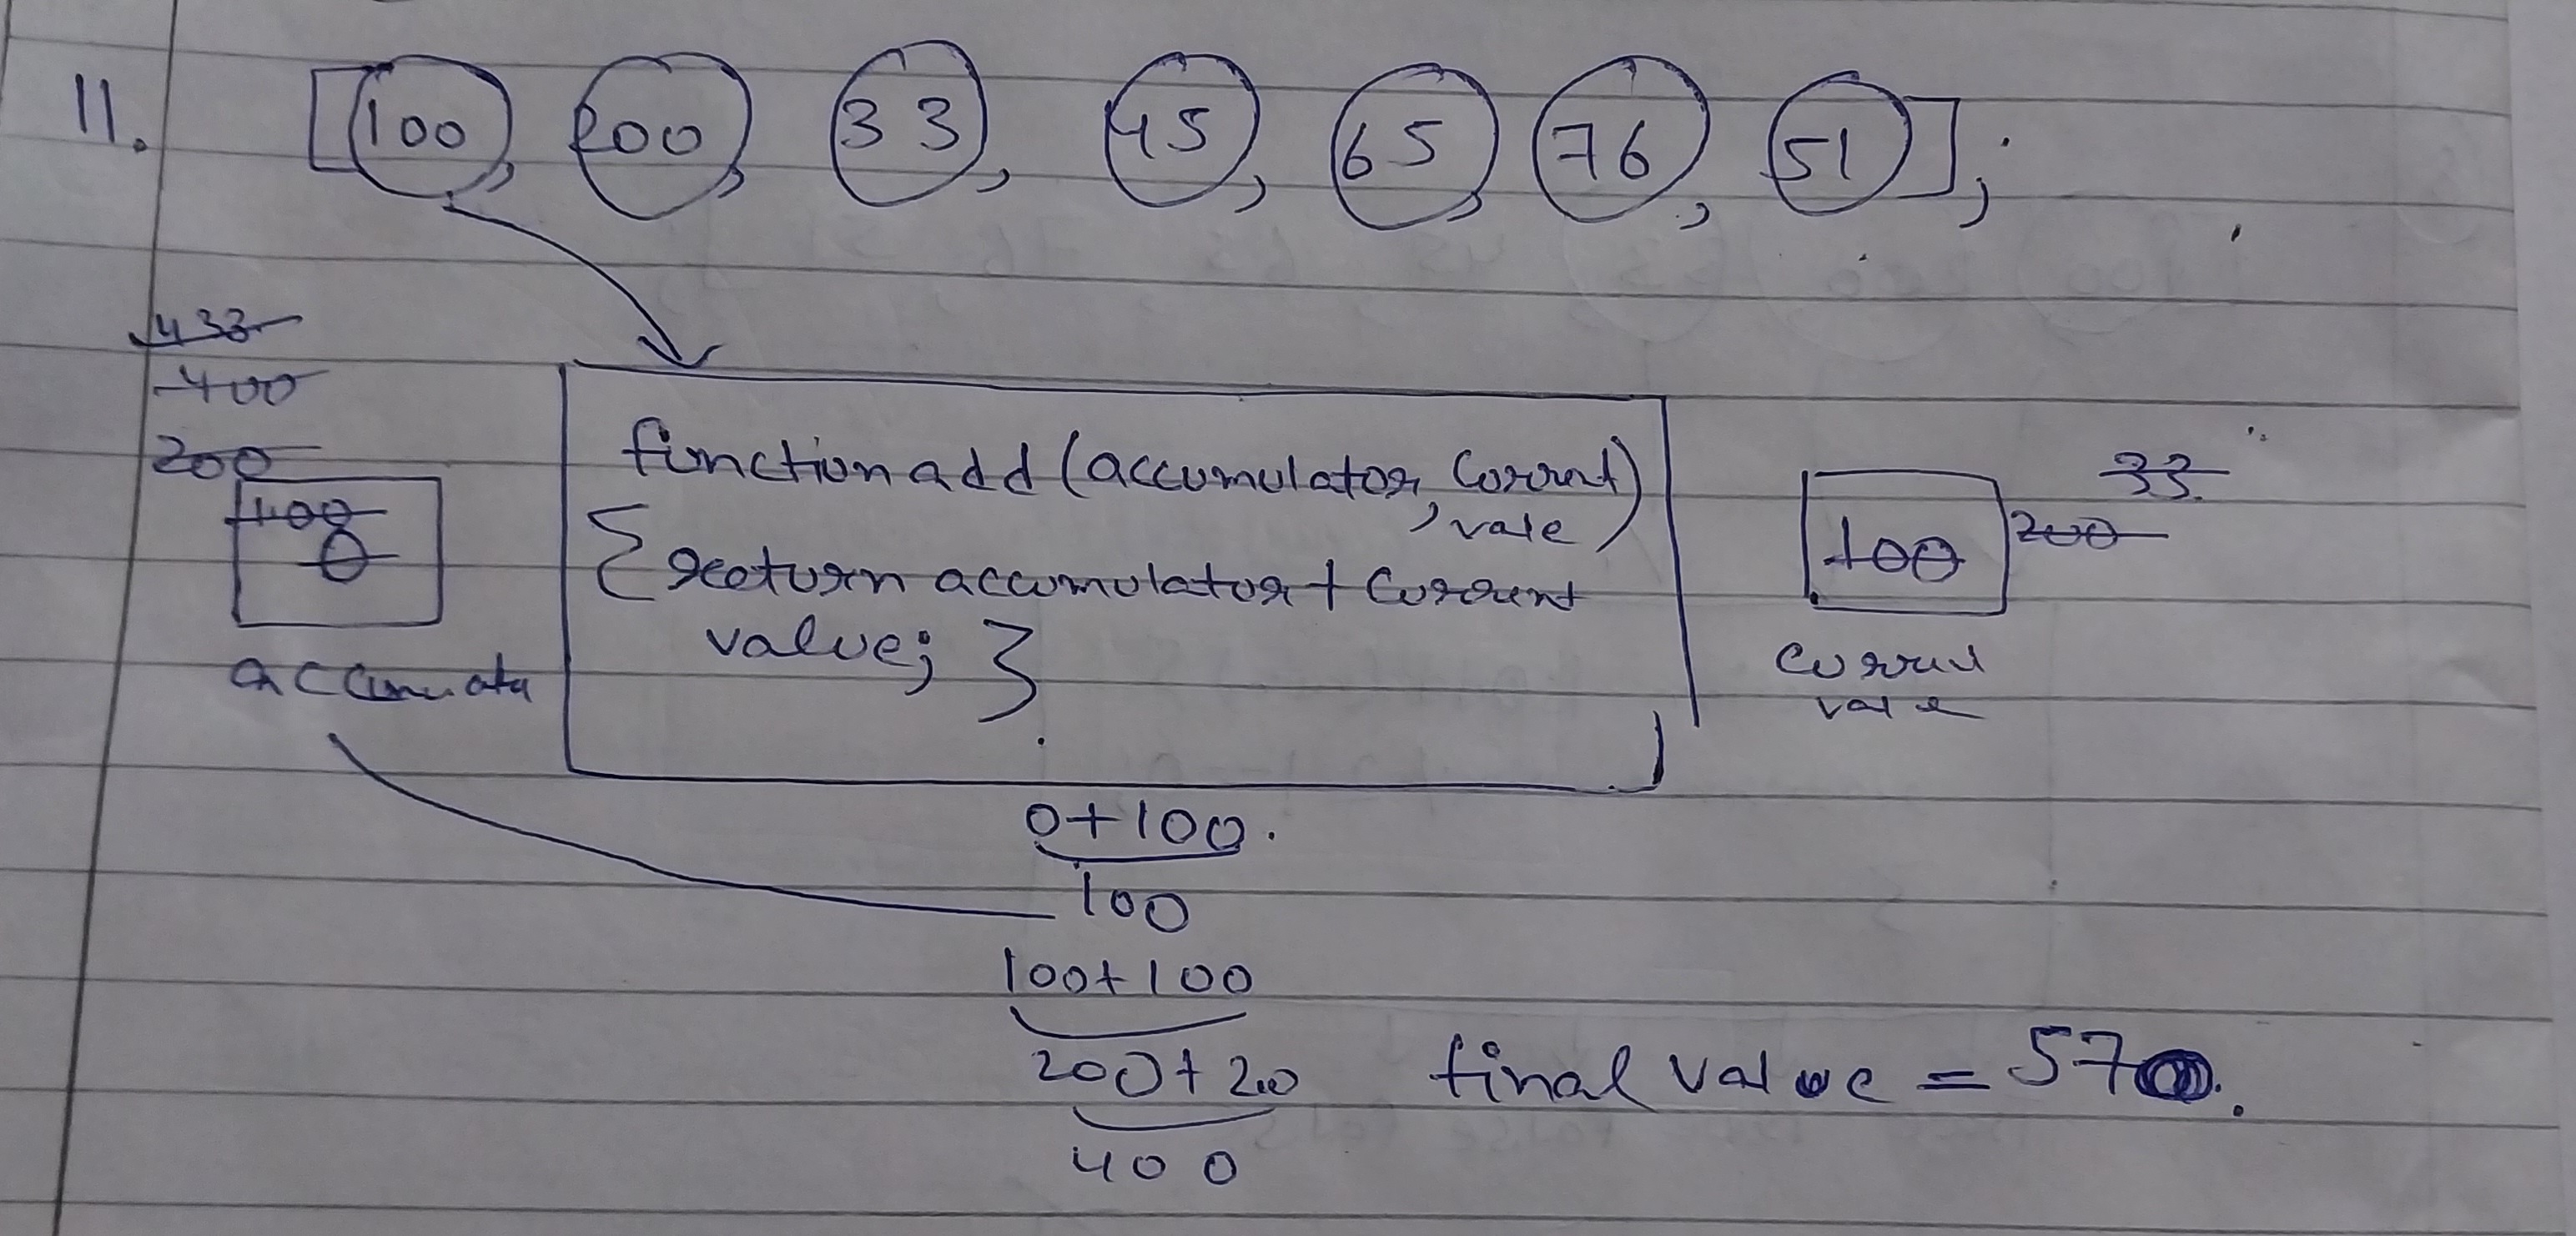 11. [100, 200, 33, 45, 65, 76, 51];
433
400
200
100
0
accumata
function add (accumulator, Current
vale)
{ return accumulator + Current
value; }
33
100 200
value
0+100.
100
100+100
200+200
400
final value = 570.